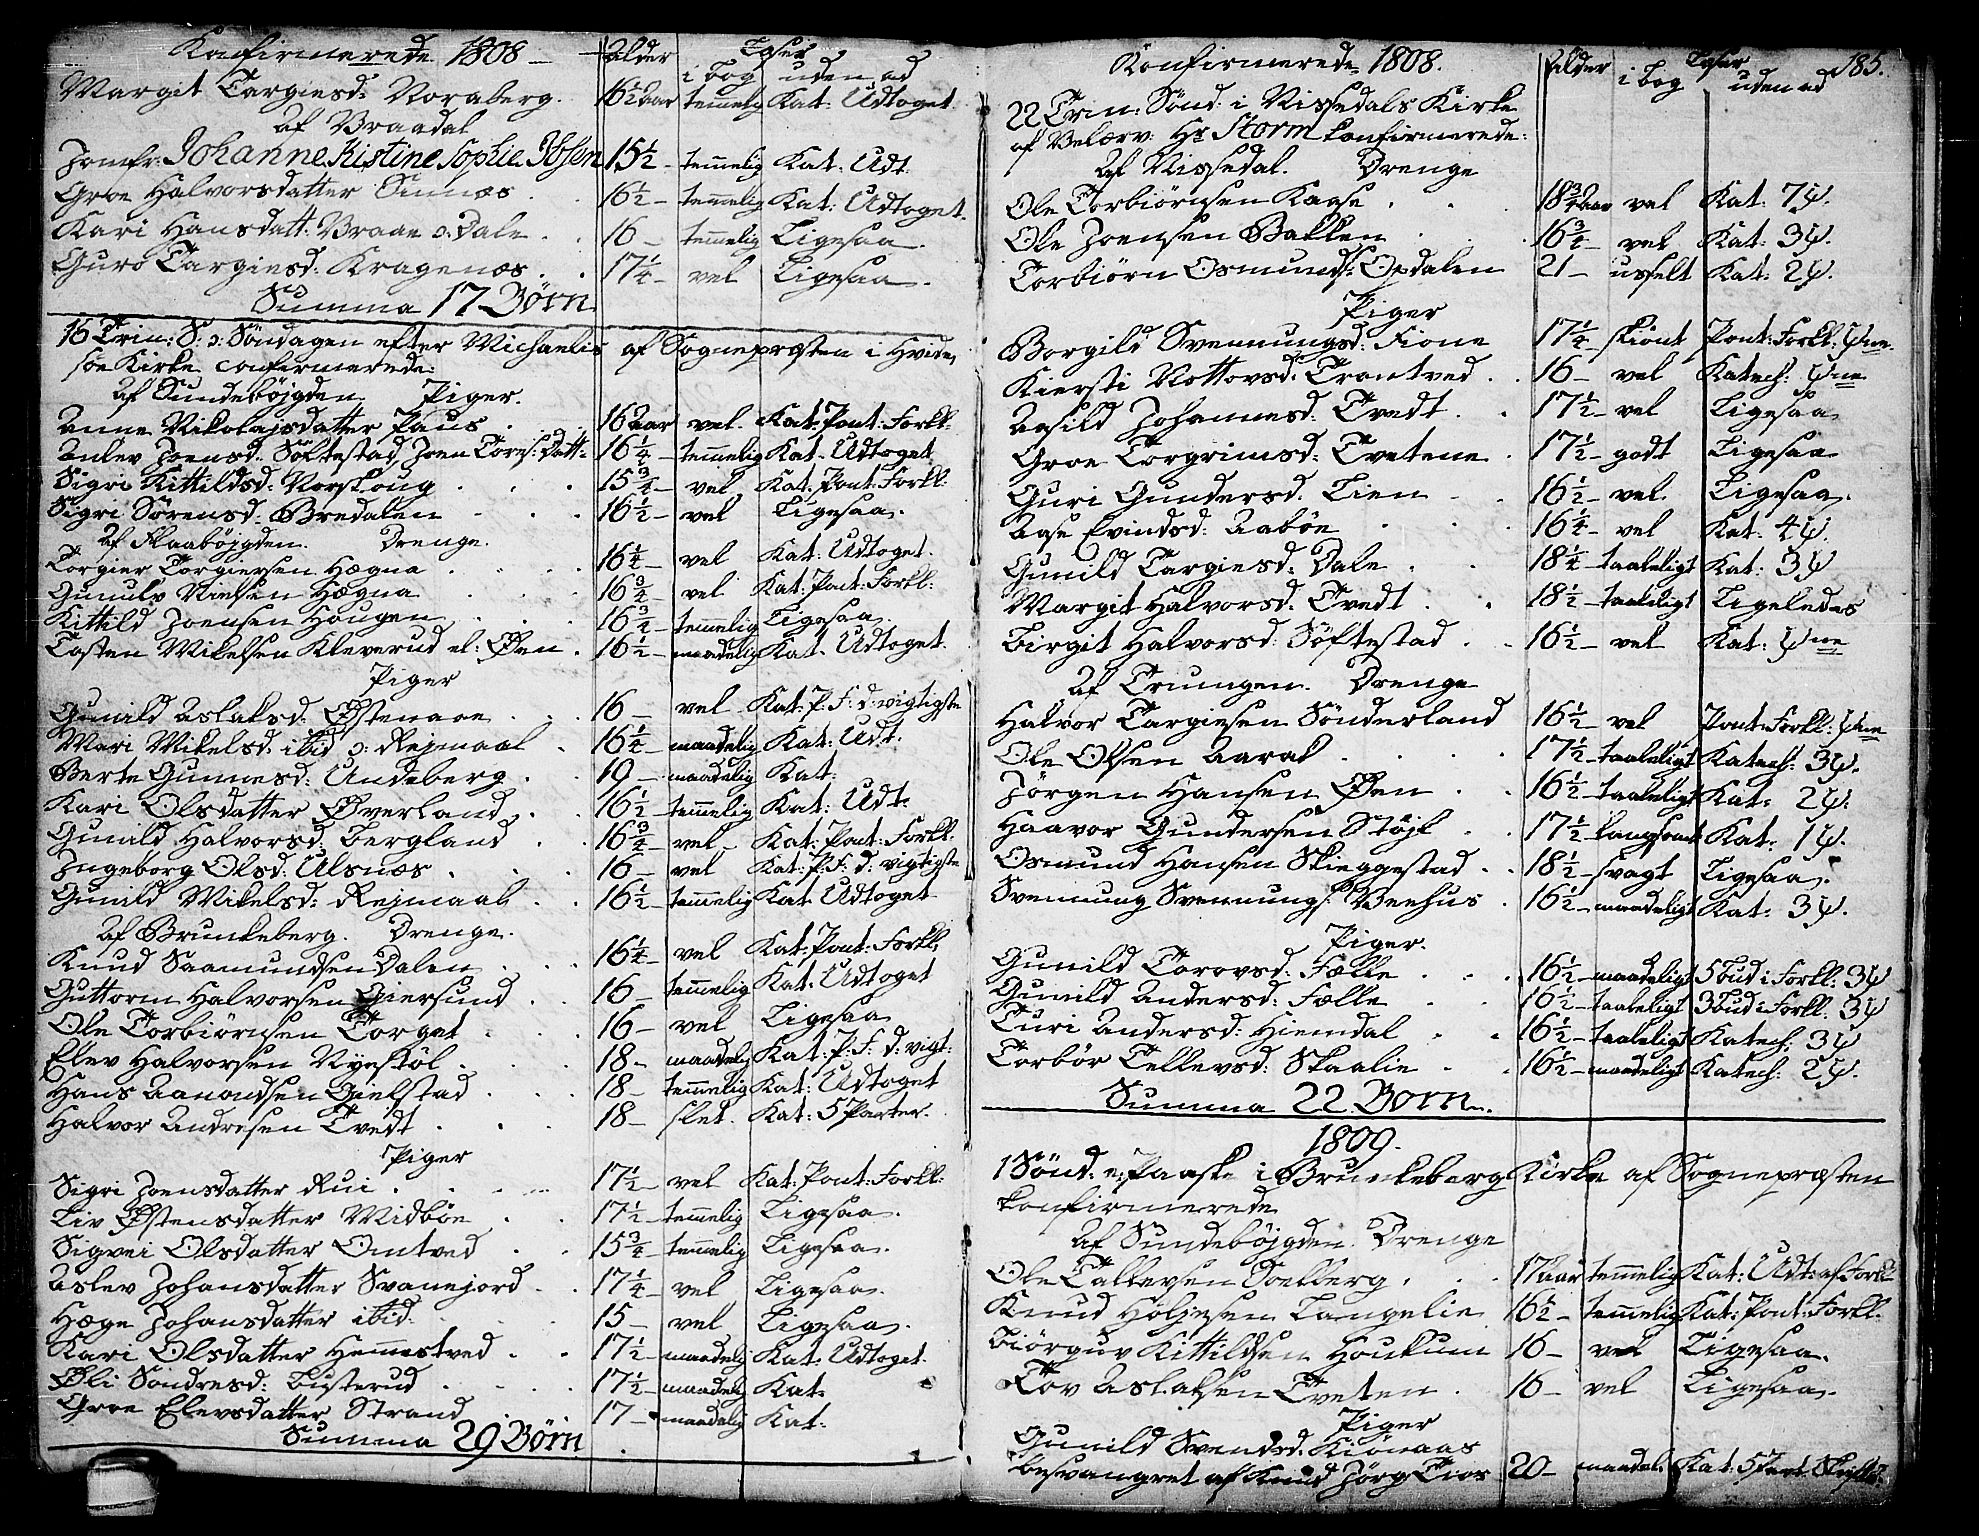 Konfirmerede 1808 Alder Læser i bog uden ad
Margit Targiesd: Noraberg. 16½ Aar temmelig Kat: Udtoget
af Vraadal
Jomfr: Johanne Kistine Sophie Ibsen 15½ - temmelig Kat: Udt:
Groe Halvorsdatter Sinnæs 16½ - temmelig Kat: Udtoget.
Kari Hansdatt: Vraae ɔ: Dale 16 - temmelig Ligesaa.
Guro Targiesd: Kragenæs 17¼ - vel Ligesaa.
Summa 17 Börn
16 Trin: S. ɔ: Söndagen efter Michaelis af Sognepræsten i Hvide
söe Kirke confirmerede:
af Sundebøjgden Piger.
Anne Nikolajsdatter Paus 16 Aar vel. Kat: Pont: Forkl:
Anlev Joensd: Söftestad, Joen Tores: Datt: 16¼ - temmelig Kat. Udtoget
Sigri Kittildsd: Norskoug 15¾ - vel Kat: Pont: Forkl:
Sigri Sörensd: Bredalen 16½ - vel Ligesaa.
af Flaabøjgden. Drenge.
Torgier Torgiersen Hægna 16¼ - vel Kat: Udtoget.
Gunulv Nielsen Hægna 16¾ - vel Kat: Pont: Forkl:
Kittild Joensen Hougen 16¾ - temmelig Ligesaa.
Tosten Mikelsen Kleverud el: Øen. 16½ - maadelig Kat. Udtoget.
Piger
Gunild Aslaksd: Østenaae 16 - vel Kat: P: F: d: vigtigste
Mari Mikelsd: ibid ɔ: Rejmaal 16¼ - maadelig Kat: Udt:
Berte Gunnesd: Undeberg 19 - maadelig Kat:
Kari Olsdatter Øverland 16½ - temmelig Kat: Udt:
Gunild Halvorsd: Bergland 16¾ - vel Kat: Pont: Forkl:
Ingeborg Olsd: Ulsnæs 16 - vel Kat: P: F: d: vigtigste
Gunild Mikelsd: Rejmaal 16½ - temmelig Kat. Udtoget
af Brunkeberg. Drenge.
Knud Saamundsen Dalen 16¼ - vel Kat: Pont: Forkl:
Guttorm Halvorsen Giersund 16 - temmelig Kat: Udtoget
Ole Torbiörnsen Torget 16 - vel Ligesaa
Elev Halvorsen Nyestöl 18 - maadelig Kat: P: F: d: vigt:
Hans Aanondsen Gielstad 18 - temmelig Kat: Udtoget
Halvor Andresen Tvedt 18 - slet. Kat: 5 Parter.
Piger
Sigri Joensdatter Rui 17½ - vel Kat: Pont: Forkl:
Liv Østensdatter Midbøe 17½ - temmelig Ligesaa.
Sigvei Olsdatter Omtved 15¾ - temmelig Ligesaa.
Aslev Johansdatter Svanejord 17¼ - vel Ligesaa.
Hæge Johansdatter ibid. 15 - vel Ligesaa.
Kari Olsdatter Hemmestved 17½ - maadelig Kat: Udtoget.
Øli Sondresd: Busterud 17½ - maadelig Kat.
Groe Elevsdatter Strand 17 - maadelig Kat.
Summa 29 Börn
Konfirmerede 1808. Alder Læser i bog uden ad 185.
22 Trin: Sönd: i Nissedals Kirke
af Velærv: Hr Storm konfirmerede:
af Nissedal. Drenge
Ole Torbiörnsen Kaase 18¾ Aar vel Kat: 7 ψ.
Ole Joensen Bakken 16¾ - vel Kat: 3 ψ.
Torbiörn Osmunds: Opdalen 21 - usselt Kat: 2 ψ.
Piger
Borgild Svennungsd: Fione 17¼ - skiönt Pont: Forkl: ψne.
Kiersti Nottovsd: Trontved 16 - vel Katech: ψne
Aasild Johannesd: Tvedt 17½ - vel Ligesaa
Groe Torgrimsd: Tvetene 17½ - godt Ligesaa
Guri Gundersd: Lien 16½ - vel. Ligesaa.
Aase Evindsd: Aabøe 16¼ - vel Kat: 4 ψ.
Gunild Targiesd: Dale 18¼ - taaleligt Kat: 3 ψ
Margit Halvorsd: Tvedt 18½ - taaleligt Ligeledes
Birgit Halvorsd: Söftestad 16½ - vel Kat: ψne
af Trungen. Drenge
Halvor Targiesen Sönderland 16½ - vel Pont: Forkl: ψne
Ole Olsen Aaral 17½ - taaleligt Katech: 3 ψ.
Jörgen Hansen Øen 16½ - taaleligt Kat: 2 ψ.
Haavor Gundersen Støjl 17½ - langsomt Kat: 1 ψ.
Osmund Hansen Skieggestad 18½ - svagt Ligesaa.
Svennung Svennungs: Veehus 16½ - maadeligt Kat: 3 ψ.
Piger.
Gunild Torovsd: Fælle 16½ - maadeligt 5 Bud i Forkl: 3 ψ
Gunild Andersd: Fælle 16½ - taaleligt 3 Bud i Forkl: 3 ψ
Turi Andersd: Hiemdal 16½ - taaleligt Katech: 3 ψ
Torbör Tellevsd: Skaalie 16½ - maadeligt Katech: 2 ψ.
Summa 22 Børn.
1809.
1 Sönd: e: Paaske i Brunkeberg Kirke af Sognepræsten
konfirmerede
af Sundebøjgden. Drenge
Ole Tallevsen Soelberg 17 Aar temmelig Kat: Udt: af Forkl:
Knud Holjesen Langelie 16½ - temmelig Kat: Pont: Forkl:
Biörguv Kittildsen Houkum 16 - vel Ligesaa.
Tov Aslaksen Tveten 16 - vel Ligesaa.
Piger
Gunild Svendsd: Kiönaas
besvangret af Knud Jörg: Tios 20 - maadel: Kat: 5 Part: